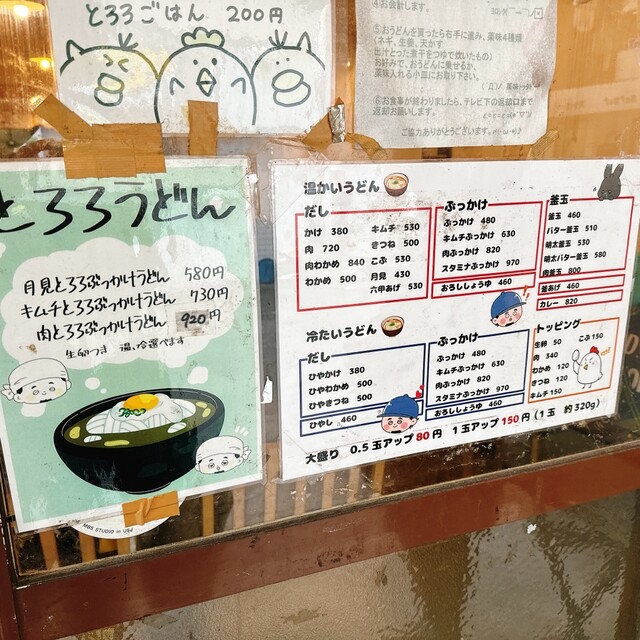 とろろごはん 200円
④お会計します。
⑤おうどんを買ったら右手に進み、薬味4種麺
ネギ、生姜、天かす
出汁とった素をつゆで炊いたもの)
お好みで、おうどんに乗せるか、
薬味入れる小皿にお取り下さい。
⑥お食事が終わりましたら、テレビ下の返却口まで
返却お願いします。
ご協力ありがとうございます。
とろろうどん
月見とろろぶっかけうどん 580円
キムチとろろぶっかけうどん 730円
肉とろろぶっかけうどん 920円
生卵つき 温、冷選べます
MBS STUDIO in USJ
温かいうどん
だし
かけ 380
肉 720
肉わかめ 840
わかめ 500
キムチ 530
きつね 500
こぶ 530
月見 430
六甲あげ 530
ぶっかけ
ぶっかけ 480
キムチぶっかけ 630
肉ぶっかけ 820
スタミナぶっかけ 970
おろししょうゆ 460
釜玉
釜玉 460
バター釜玉 510
明太釜玉 530
明太バター釜玉 580
肉釜玉 800
釜あげ 460
カレー 820
冷たいうどん
だし
ひやかけ 380
ひやわかめ 500
ひやきつね 500
ひやし 460
ぶっかけ
ぶっかけ 480
キムチぶっかけ 630
肉ぶっかけ 820
スタミナぶっかけ 970
おろししょうゆ 460
トッピング
生卵 50
肉 340
わかめ 120
きつね 120
キムチ 150
こぶ 150
大盛り 0.5玉アップ80円 1玉アップ150円(1玉 約320g)